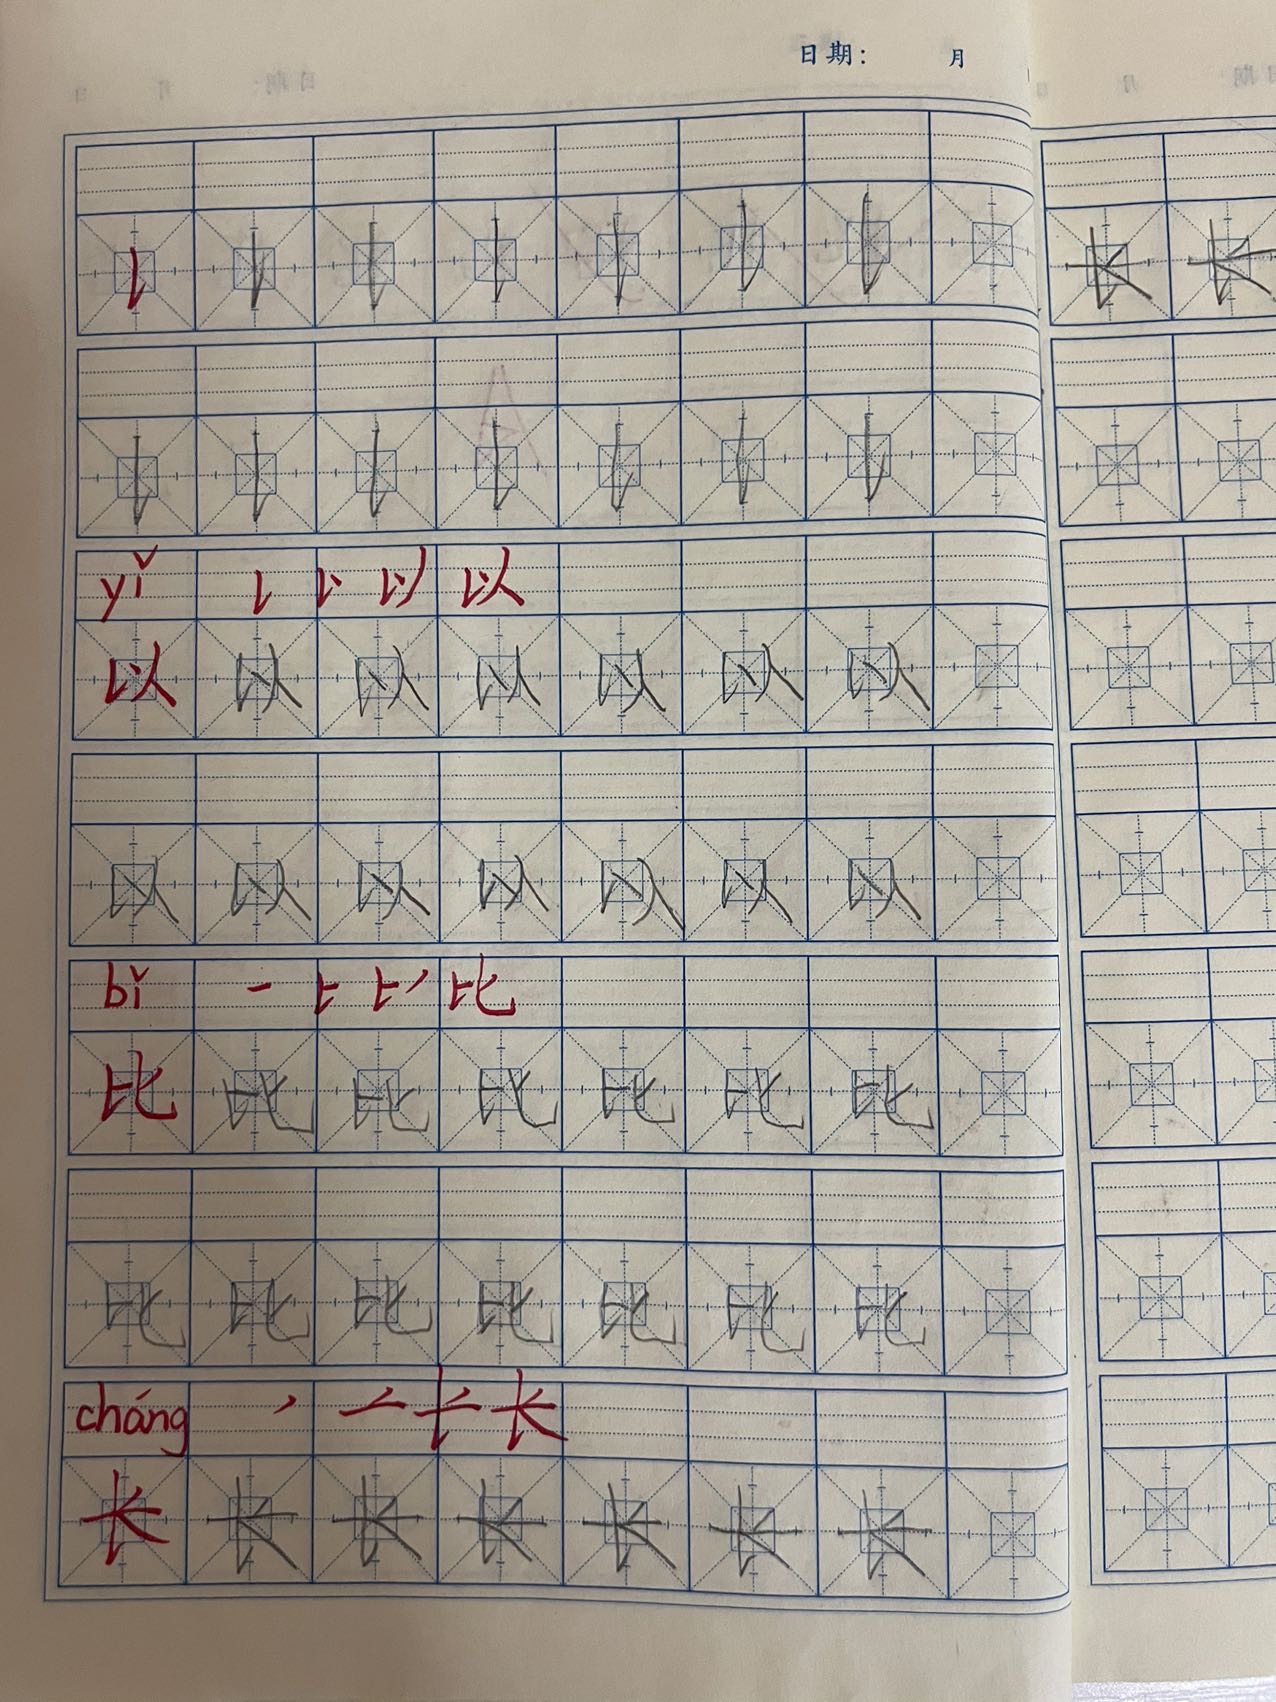 日期: 月
𠄌 𠄌 𠄌 𠄌 𠄌 𠄌 𠄌
𠄌 𠄌 𠄌 𠄌 𠄌 𠄌 𠄌
yǐ 𠄌 以
以 以 以 以 以 以 以
以 以 以 以 以 以 以
bǐ 一 比
比 比 比 比 比 比 比
比 比 比 比 比 比 比
cháng 长
长 长 长 长 长 长 长
长 长